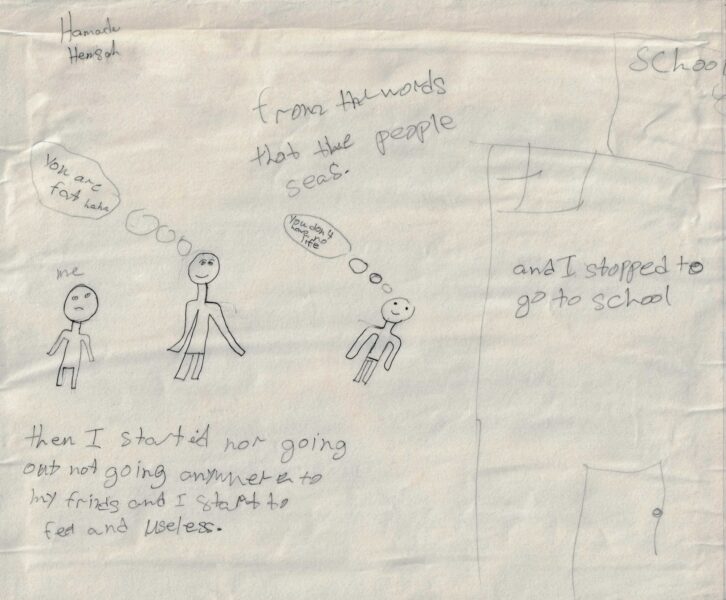 Hamadu
Hensah
from the words
that the people
seas.
School
You are
fat haha
You don't
have no
life
me
and I stopped to
go to school
then I started nor going
out not going anywhere to
my frinds and I start to
fed and useless.